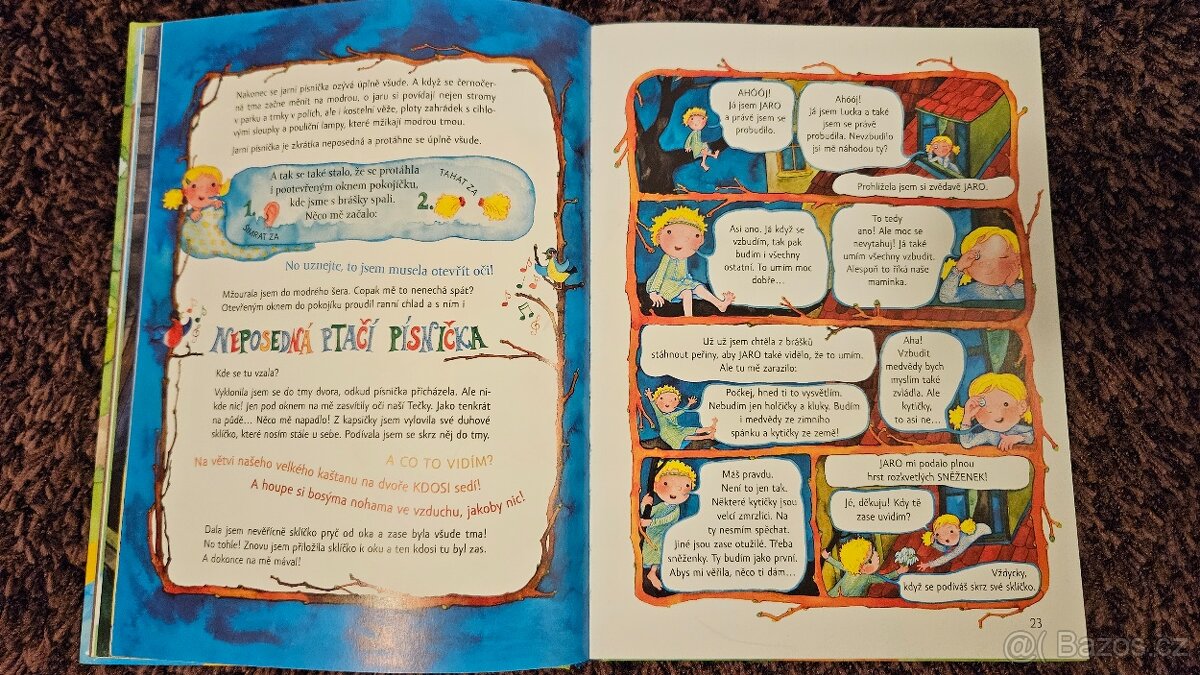 Nakonec se jarní písnička ozývá úplně všude. A když se černočer-
ná tma začne měnit na modrou, o jaru si povídají nejen stromy
v parku a trnky v polích, ale i kostelní věže, ploty zahrádek s cihlo-
vými sloupky a pouliční lampy, které mžikají modrou tmou.
Jarní písnička je zkrátka neposedná a protáhne se úplně všude.
A tak se také stalo, že se protáhla
i pootevřeným oknem pokojíčku,
kde jsme s brášky spali.
Něco mě začalo:
1.
ŠIMRAT ZA
2.
TAHAT ZA
No uznejte, to jsem musela otevřít oči!
Mžourala jsem do modrého šera. Copak mě to nenechá spát?
Otevřeným oknem do pokojíku proudil ranní chlad a s ním i
NEPOSEDNÁ PTAČÍ PÍSNIČKA
Kde se tu vzala?
Vyklonila jsem se do tmy dvora, odkud písnička přicházela. Ale ni-
kde nic! Jen pod oknem na mě zasvítily oči naší Tečky. Jako tenkrát
na půdě... Něco mě napadlo! Z kapsičky jsem vylovila své duhové
sklíčko, které nosím stále u sebe. Podívala jsem se skrz něj do tmy.
A CO TO VIDÍM?
Na větvi našeho velkého kaštanu na dvoře KDOSI sedí!
A houpe si bosýma nohama ve vzduchu, jakoby nic!
Dala jsem nevěřícně sklíčko pryč od oka a zase byla všude tma!
No tohle! Znovu jsem přiložila sklíčko k oku a ten kdosi tu byl zas.
A dokonce na mě mával!
AHÓÓJ!
Já jsem JARO
a právě jsem se
probudilo.
Ahóój!
Já jsem Lucka a také
jsem se právě
probudila. Nevzbudilo
jsi mě náhodou ty?
Prohlížela jsem si zvědavě JARO.
Asi ano. Já když se
vzbudím, tak pak
budím i všechny
ostatní. To umím moc
dobře...
To tedy
ano! Ale moc se
nevytahuj! Já také
umím všechny vzbudit.
Alespoň to říká naše
maminka.
Už už jsem chtěla z brášků
stáhnout peřiny, aby JARO také vidělo, že to umím.
Ale tu mě zarazilo:
Počkej, hned ti to vysvětlím.
Nebudím jen holčičky a kluky. Budím
i medvědy ze zimního
spánku a kytičky ze země!
Aha!
Vzbudit
medvědy bych
myslím také
zvládla. Ale
kytičky,
to asi ne...
Máš pravdu.
Není to jen tak.
Některé kytičky jsou
velcí zmrzlíci. Na
ty nesmím spěchat.
Jiné jsou zase otužilé. Třeba
sněženky. Ty budím jako první.
Abys mi věřila, něco ti dám...
JARO mi podalo plnou
hrst rozkvetlých SNĚŽENEK!
Jé, děkuju! Kdy tě
zase uvidím?
Vždycky,
když se podíváš skrz své sklíčko.
23
@( Bazos.cz